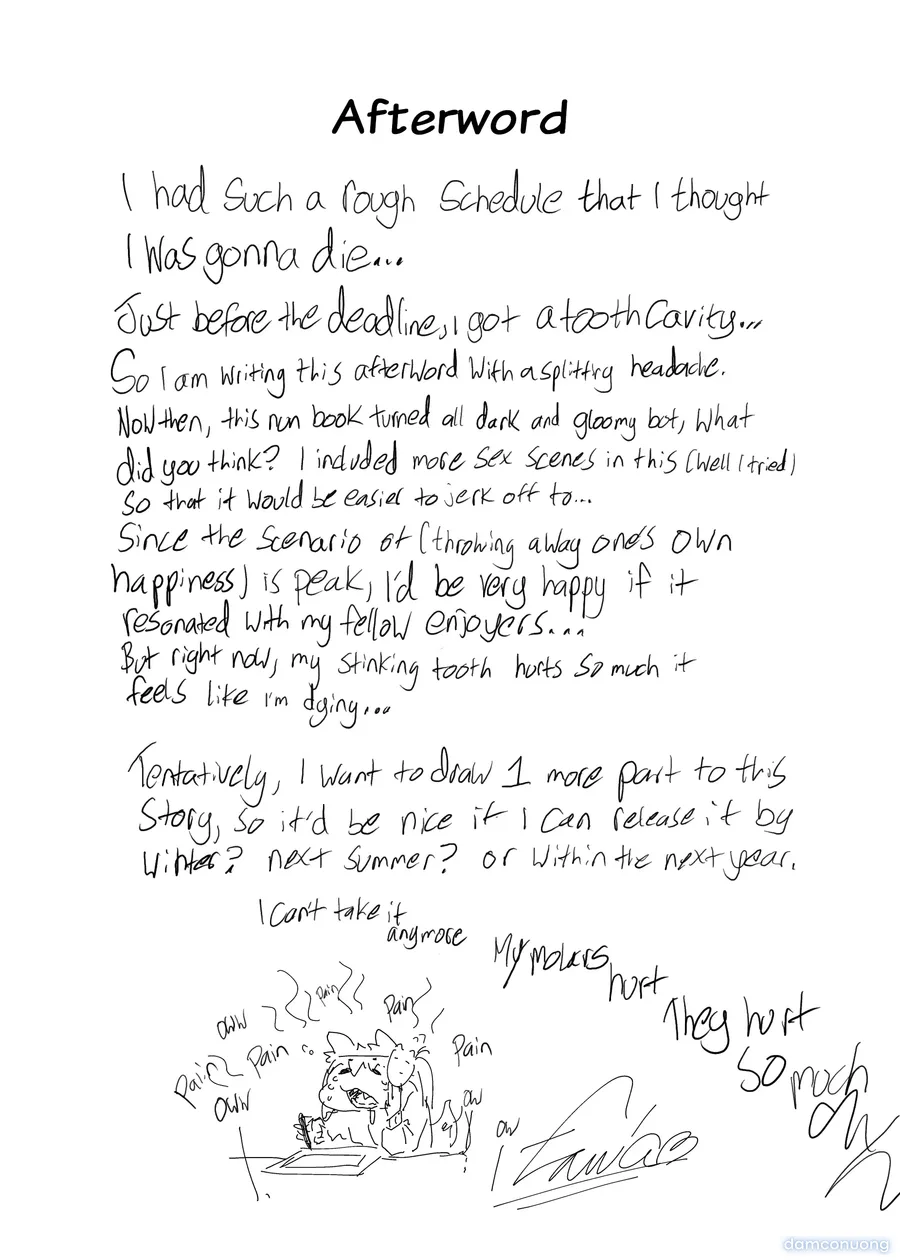 Afterword
I had such a rough schedule that I thought
I was gonna die...
Just before the deadline, I got a tooth cavity...
So I am writing this afterword with a splitting headache.
Now then, this nun book turned all dark and gloomy bot, what
did you think? I included more sex scenes in this (well I tried)
so that it would be easier to jerk off to...
Since the scenario of (throwing away one's own
happiness) is peak, I'd be very happy if it
resonated with my fellow enjoyers...
But right now, my stinking tooth hurts so much it
feels like I'm dying...
Tentatively, I want to draw 1 more part to this
story, so it'd be nice if I can release it by
winter? next summer? or within the next year.
I can't take it
anymore
My molars
hurt
They hurt
so much
Oww
Pain
Pain
Pain
Pain
Pain
oww
ow
ow
damconuong